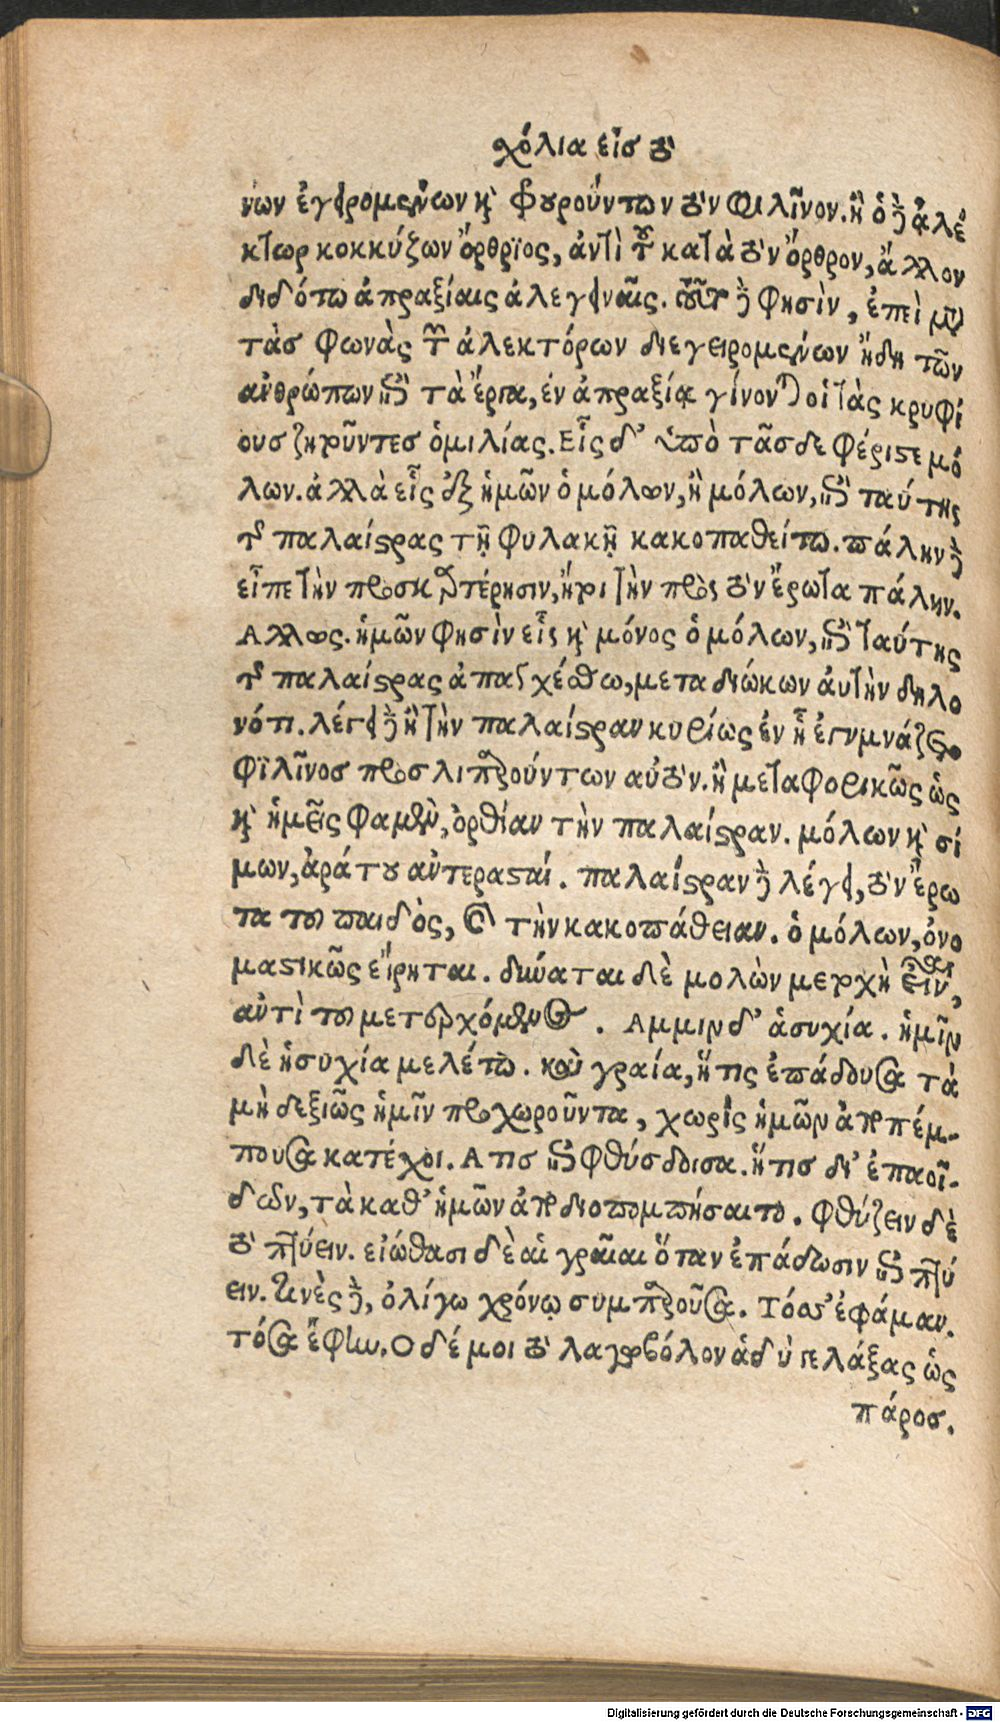 χόλια εἰσ τὸ
νων ἐγειρομένων καὶ φρουρούντων τὸν φιλῖνον. ἢ ὁ δὲ ἀλέ
κτωρ κοκκύζων ὄρθριος, ἀντὶ τοῦ κατὰ τὸν ὄρθρον, ἄλλον
διδότω ἀπραξίαις ἀλεγειναῖς. τοῦτο δὲ φησὶν, ἐπεὶ μετὰ
τὰσ φωνὰς τῶν ἀλεκτόρων διεγειρομένων ἤδη τῶν
ἀνθρώπων ἐπὶ τὰ ἔργα, ἐν ἀπραξίᾳ γίνονται οἱ τὰς κρυφί
ουσ ζητοῦντεσ ὁμιλίας. Εἷς δ' ὑπὸ τᾶσδε φέριστε μό
λων. ἀλλὰ εἷς ἐξ ἡμῶν ὁ μόλων, ἢ μόλων, ἐπὶ ταύτης
τῆς παλαίστρας τῇ φυλακῇ κακοπαθείτω. πάλην δὲ
εἶπε τὴν προσκαρτέρησιν, ἤτοι τὴν πρὸς τὸν ἔρωτα πάλην.
Αλλως. ἡμῶν φησὶν εἷς καὶ μόνος ὁ μόλων, ἐπὶ ταύτης
τῆς παλαίστρας ἀπαγχέσθω, μεταδιώκων αὐτὴν δηλο
νότι. λέγει δὲ ἢ τὴν παλαίστραν κυρίως ἐν ᾗ ἐγυμνάζετο
φιλῖνοσ προσλιπαρούντων αὐτὸν. ἢ μεταφορικῶς ὡς
καὶ ἡμεῖς φαμὲν, ὀρθίαν τὴν παλαίστραν. μόλων καὶ σί
μων, ἀράτου ἀντερασταί. παλαίστραν δὲ λέγει, τὸν ἔρω
τα τοῦ παιδὸς, καὶ τὴν κακοπάθειαν. ὁ μόλων, ὀνο
μαστικῶς εἴρηται. δύναται δὲ μολὼν μετοχὴ εἶναι,
ἀντὶ τοῦ μετερχόμενος. Αμμιν δ' ἁσυχία. ἡμῖν
δὲ ἡσυχία μελέτω. καὶ γραία, ἥτις ἐπάδουσα τὰ
μὴ δεξιῶς ἡμῖν προχωροῦντα, χωρὶς ἡμῶν ἀποπέμ-
πουσα κατέχοι. Α τισ ἐπιφθύσδοισα. ἥτισ δι' ἐπαοι-
δῶν, τὰ καθ' ἡμῶν ἀποδιοπομπήσαιτο. φθύζειν δὲ
τὸ πτύειν. εἰώθασι δὲ αἱ γραῖαι ὅταν ἐπάδωσιν ἐπιπτύ
ειν. τινὲς δὲ, ὀλίγω χρόνῳ συμπαροῦσα. Τόσσ' ἐφάμαν.
τόσα ἔφην. Ο δέ μοι τὸ λαγωβόλον ἁδὺ γελάξας ὡς
πάροσ.
Digitalisierung gefördert durch die Deutsche Forschungsgemeinschaft - DFG